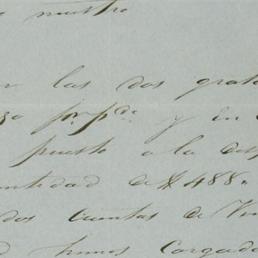 nuestro
las dos grat
y en
puesto a la disp
ntidad de $ 488.
dos cuentas de Vin
hemos Cargad